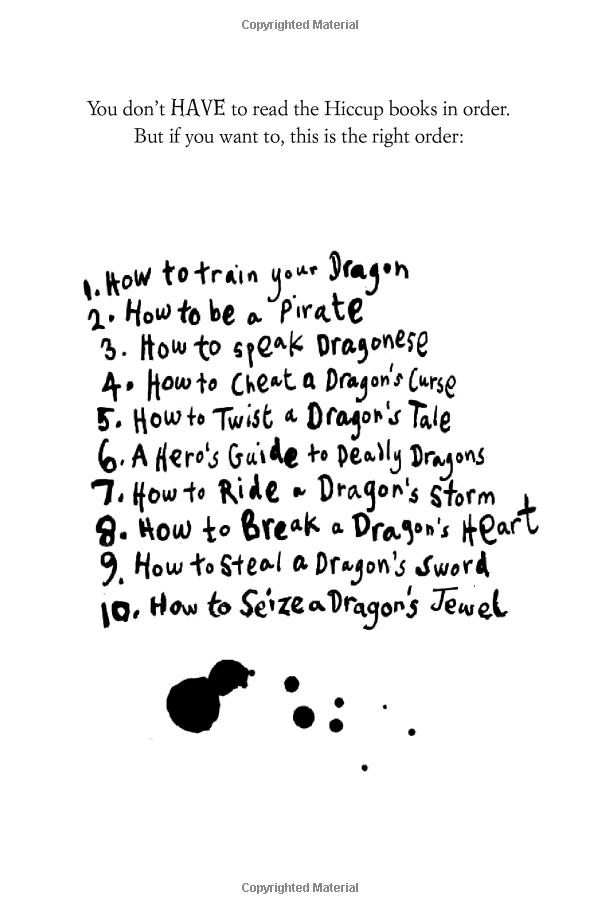 Copyrighted Material
You don't HAVE to read the Hiccup books in order.
But if you want to, this is the right order:
1. How to train your Dragon
2. How to be a Pirate
3. How to speak Dragonese
4. How to Cheat a Dragon's Curse
5. How to Twist a Dragon's Tale
6. A Hero's Guide to Deadly Dragons
7. How to Ride a Dragon's Storm
8. How to Break a Dragon's Heart
9. How to Steal a Dragon's Sword
10. How to Seize a Dragon's Jewel
Copyrighted Material